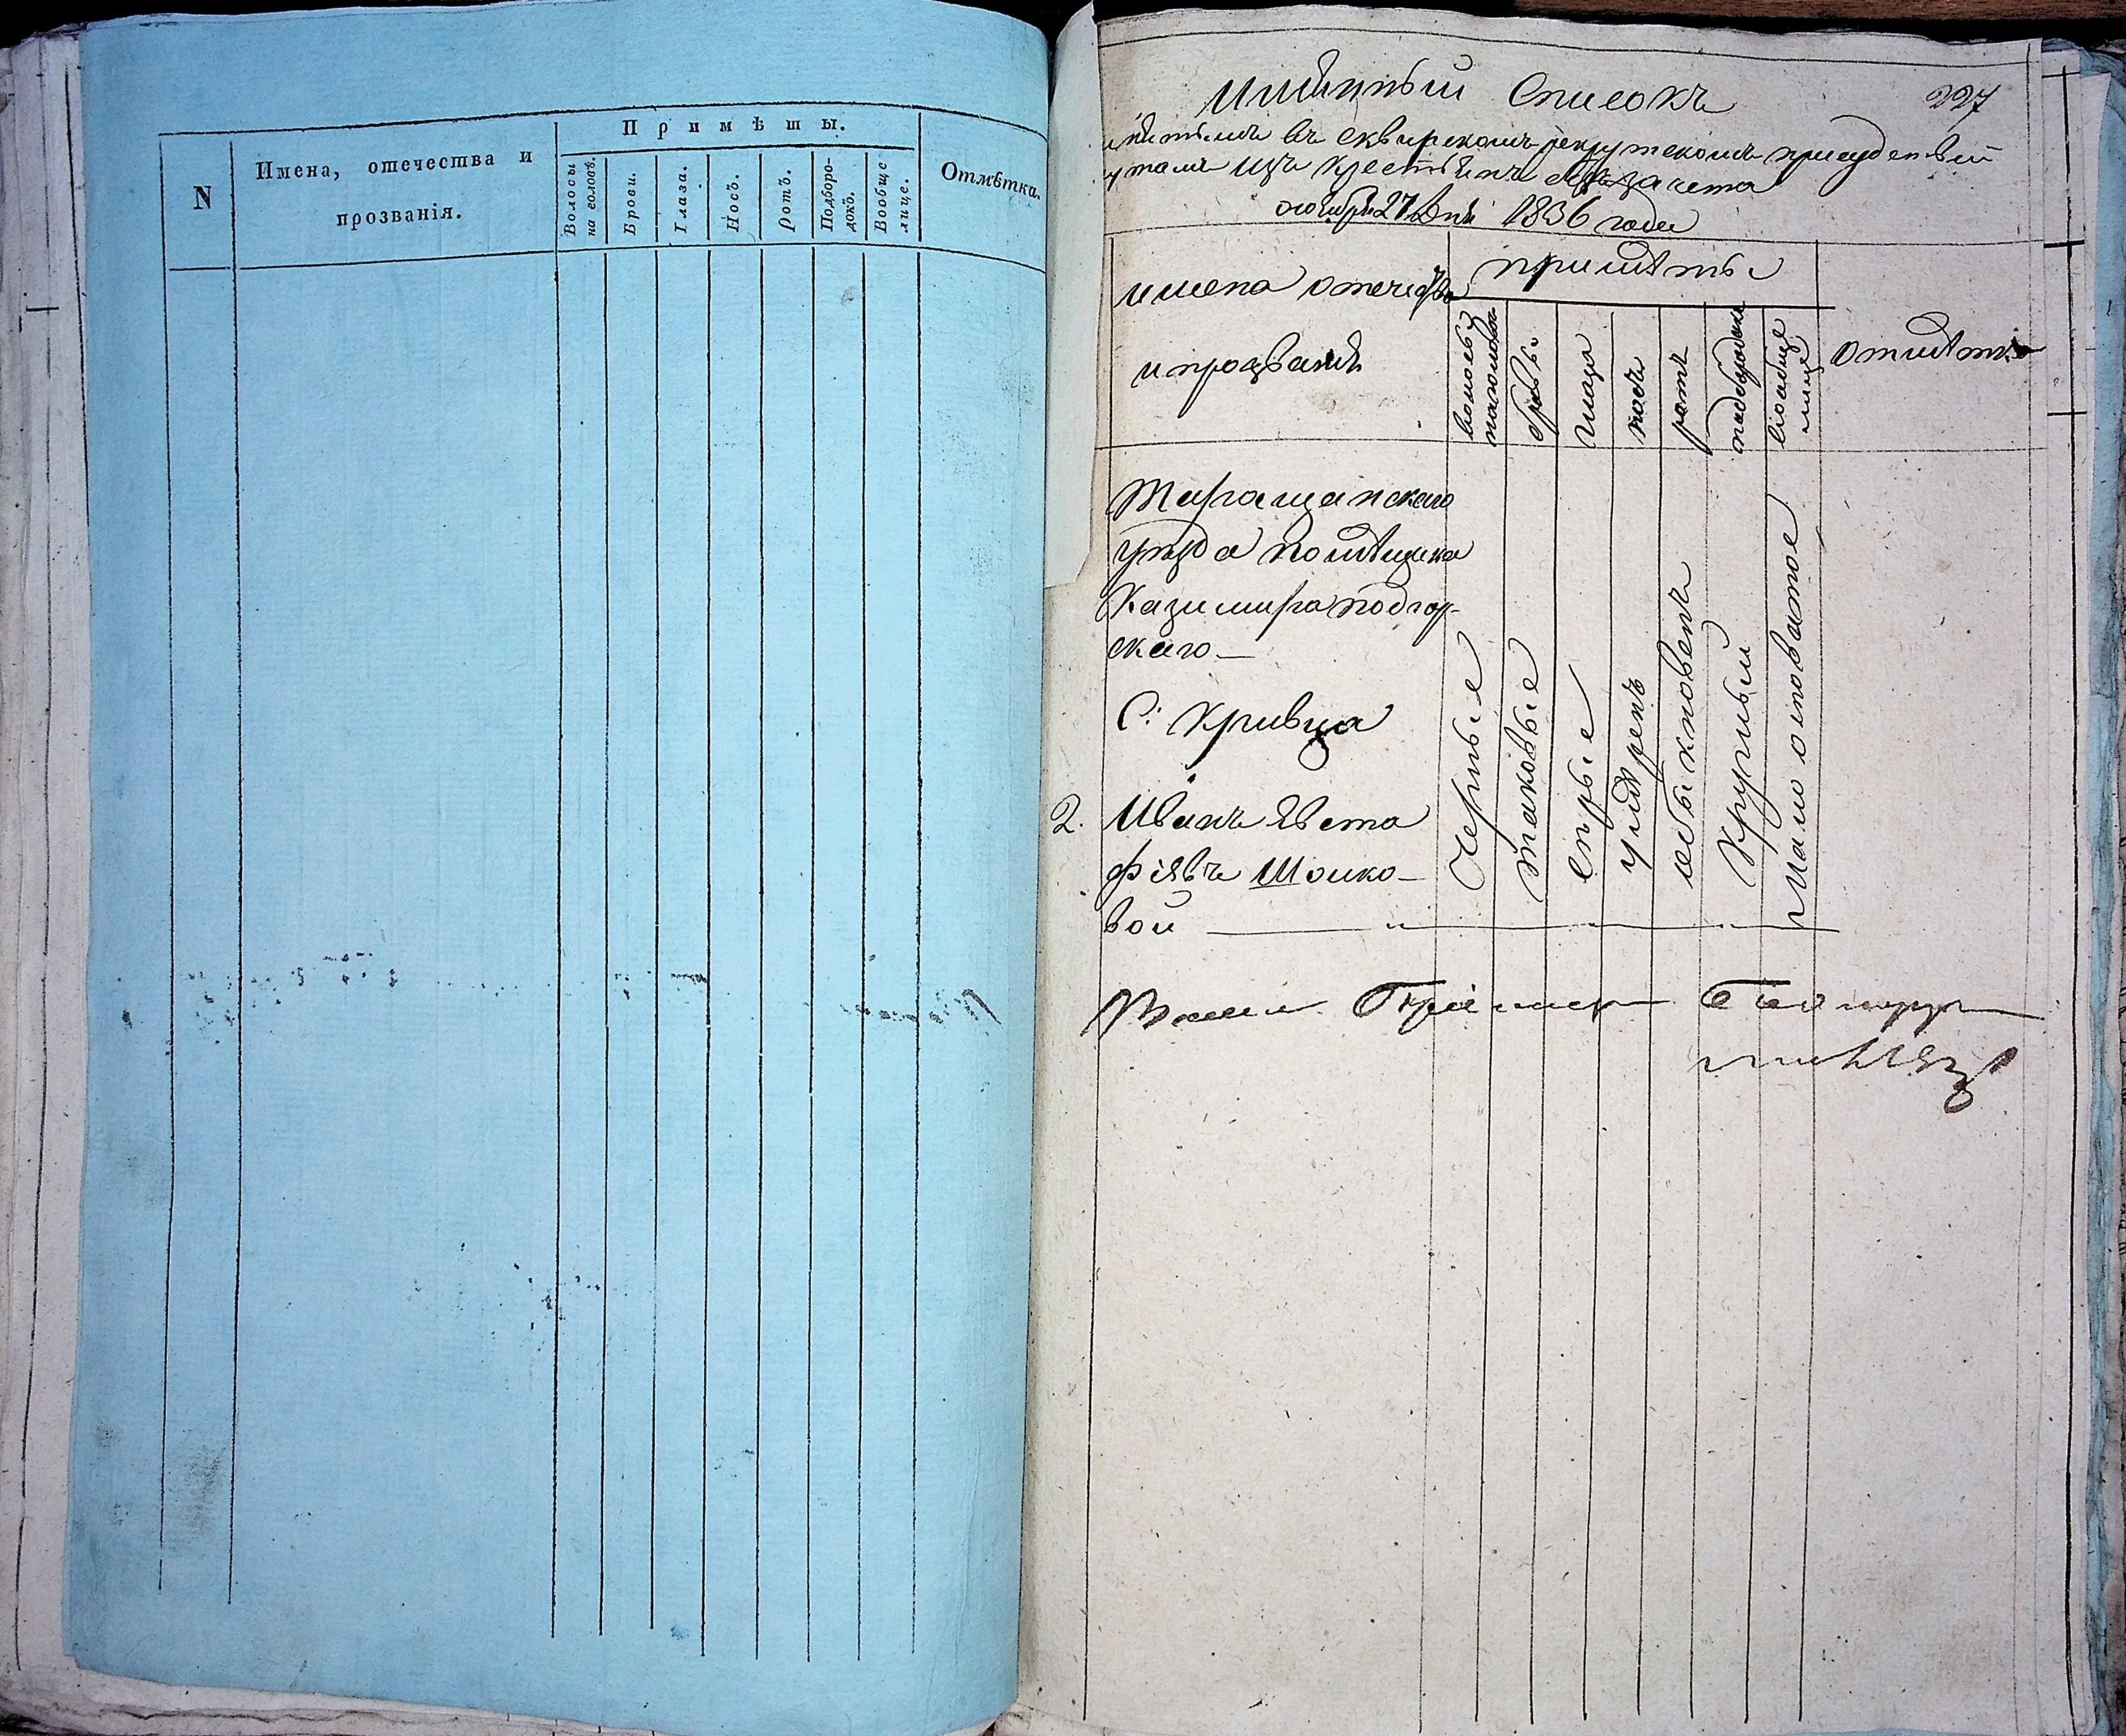 N
Имена, отечества и
прозванія.
Примѣты.
Волосы
на головѣ.
Брови.
Глаза.
Носъ.
Ротъ.
Подборо-
докъ.
Вообще
лице.
Отмѣтка.
227
Имѣнный Списокъ
въ сквирскомъ рекрутскомъ присудствій
изъ крестьянъ зачета
27 Дня 1836 года
имена отечества
и прозваніѣ
примѣты
волосы
на головѣ
бровы
глаза
носъ
ротъ
подбородокъ
вообще
лице
отмѣтка
Таращанскаго
уѣзда помѣщика
Казимира Подгор-
скаго
С: Кривца
2. Иванъ Евста
фіевъ Шолко-
вой
Черные
таковые
сѣрые
умѣренъ
обыкновенъ
Круглый
мало